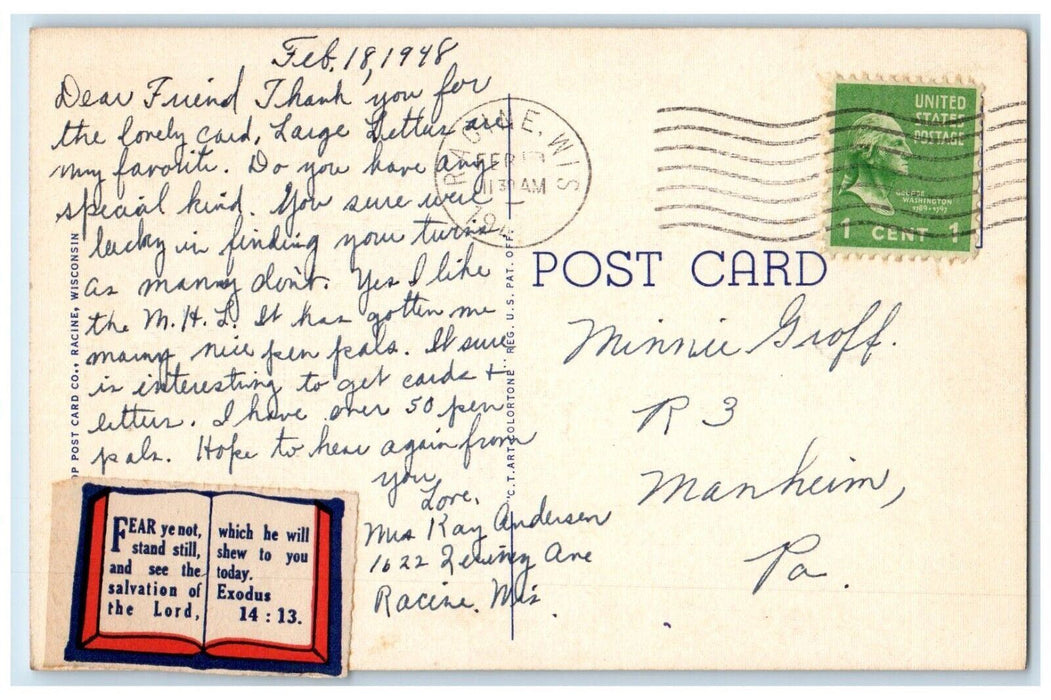 Feb. 18, 1948
Dear Friend, Thank you for
the lovely card, Large Letters are
my favorite. Do you have any
special kind. You sure were
lucky in finding your twins
as manny don't. Yes I like
the M. H. L. It has gotten me
many nice pen pals. It sure
is interesting to get cards +
letters. I have over 50 pen
pals. Hope to hear again from
you,
Love,
Mrs Ray Andersen
1622 Ave
Racine. Wis.
POST CARD CO., RACINE, WISCONSIN
"C.T. ART-COLORTONE" REG. U.S. PAT. OFF.
RACINE, WIS
FEB
11 30 AM
UNITED
STATES
POSTAGE
GEORGE
WASHINGTON
1789-1797
1 CENT 1
POST CARD
Minnie Groff.
R 3
Manheim,
Pa.
FEAR ye not,
stand still,
and see the
salvation of
the Lord,
which he will
shew to you
today.
Exodus
14 : 13.